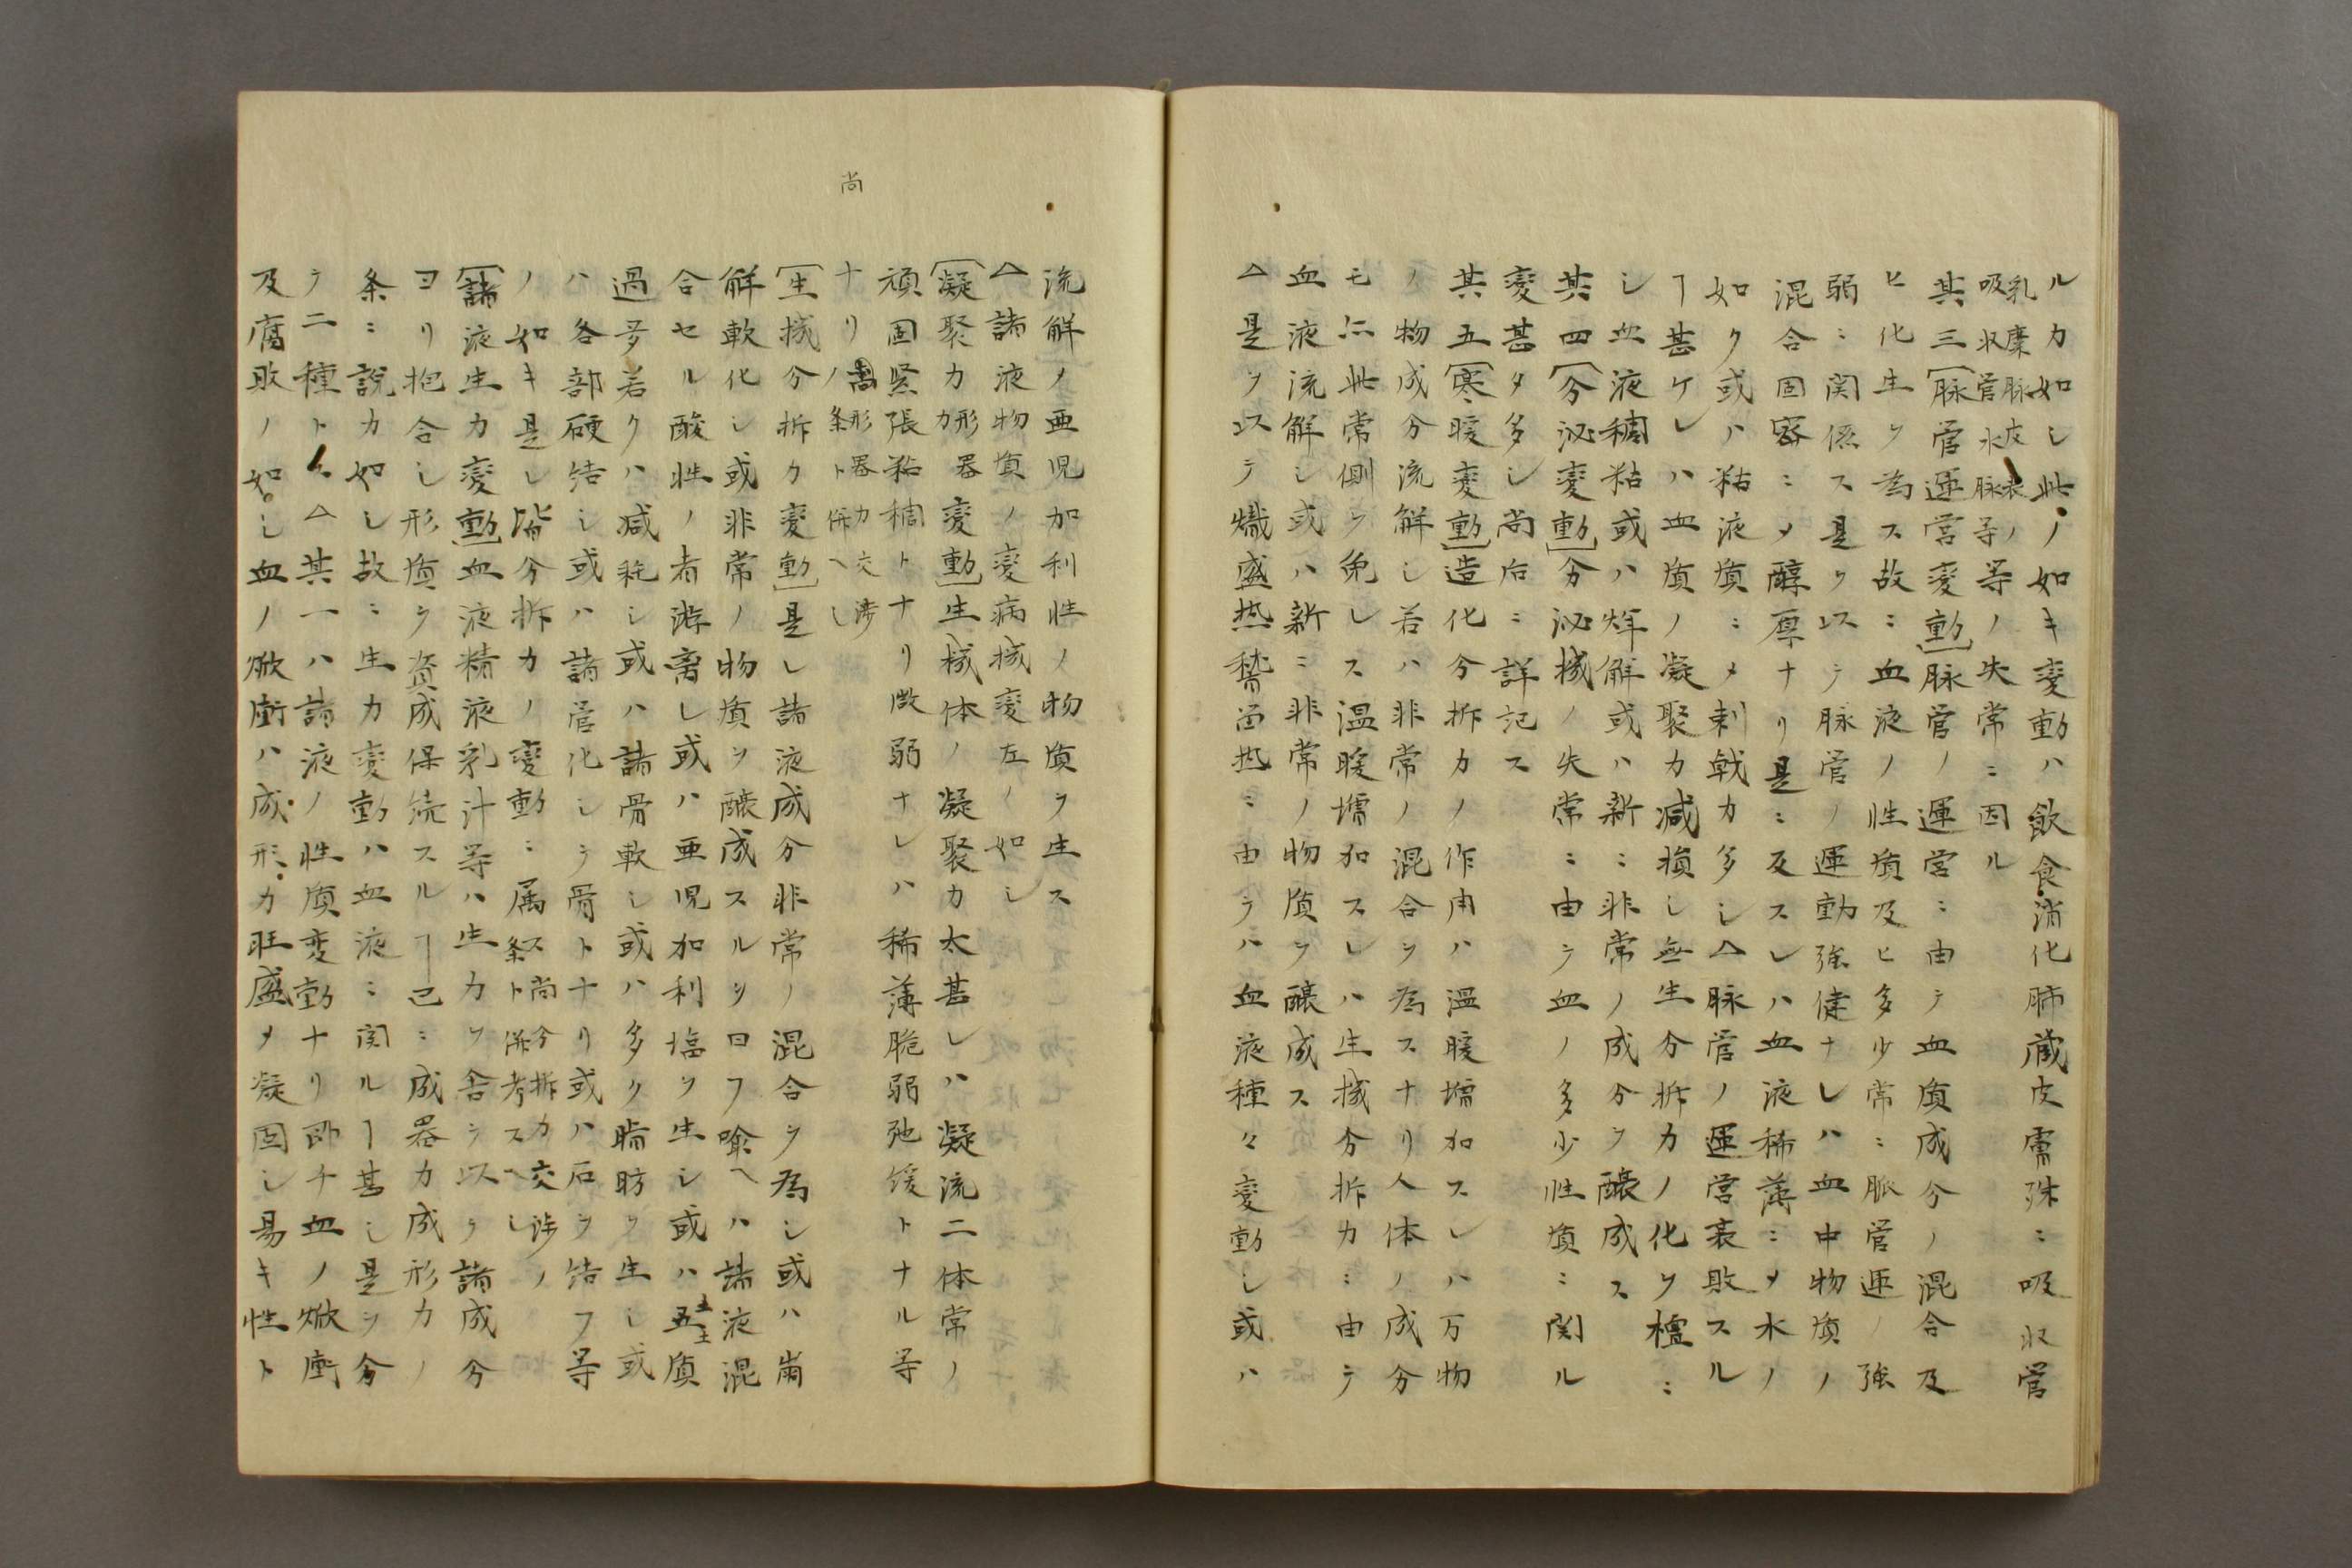 ルカ如し此ノ如キ変動ハ飲食消化肺蔵皮膚殊ニ吸収管
乳糜脉皮表ノ
吸収管水脉等ノ失常ニ因ル
其三脉管運営変動脉管ノ運営ニ由テ血質成分ノ混合及
ヒ化生ヲ為ス故ニ血液ノ性質及ヒ多少常ニ脈管運ノ強
弱ニ関係ス是ヲ以テ脉管ノ運動強健ナレハ血中物質ノ
混合固密ニメ醇厚ナリ是ニ反スレハ血液稀薄ニメ水ノ
如ク或ハ粘液質ニメ刺戟カ多し△脉管ノ運営衰敗スル
ヿ甚ケレハ血質ノ凝聚カ减損し無生分拆カノ化ヲ檀ニ
し血液稠粘或ハ烊解或ハ新ニ非常ノ成分ヲ醸成ス
其四分泌変動分泌機ノ失常ニ由テ血ノ多少性質ニ関ル
変甚タ多し尚后ニ詳記ス
其五寒暖変動造化分拆カノ作用ハ温暖増加スレハ万物
ノ物成分流解し若ハ非常ノ混合ヲ為スナリ人体ノ成分
モ亦此常側ヲ免レス温暖増加スレハ生機分拆カニ由テ
血液流解し或ハ新ニ非常ノ物質ヲ醸成ス
△是ヲ以テ熾盛热稽留热ニ由テハ血液種々変動し或ハ
流解ノ亜児加利性ノ物質ヲ生ス
△諸液物質ノ変病機変左ノ如し
凝聚カ形器カ変動生機体ノ凝聚カ太甚しハ凝流二体常ノ
頑固緊張粘稠トナリ微弱ナレハ稀薄脆弱弛緩トナル等
ナリ尚形器力交渉ノ条ト併ヘし
尚
生機分拆力変動是し諸液成分非常ノ混合ヲ為し或ハ崩
解軟化し或非常ノ物質ヲ醸成スルヲ曰フ喩ヘハ諸液混
合セル酸性ノ者游离し或ハ亜児加利塩ヲ生し或ハ土質
過多若クハ减耗し或ハ諸骨軟し或ハ多ク脂肪ヲ生し或
ハ各部硬結し或ハ諸管化しテ骨トナリ或ハ石ヲ結フ等
ノ如キ是し皆分拆カノ変動ニ属ス尚分拆カ交渉ノ条ト併考スヘし
諸液生カ変動血液精液乳汁等ハ生カヲ舎ラ以テ諸成分
ヨリ抱合し形質ヲ資成保続スルヿ已ニ成器カ成形カノ
条ニ説カ如し故ニ生カ変動ハ血液ニ関ルヿ甚し是ヲ分
テ二種トス△其一ハ諸液ノ性質変動ナリ即チ血ノ焮衝
及腐敗ノ如し血ノ焮衝ハ成形カ旺盛メ凝固し易キ性ト